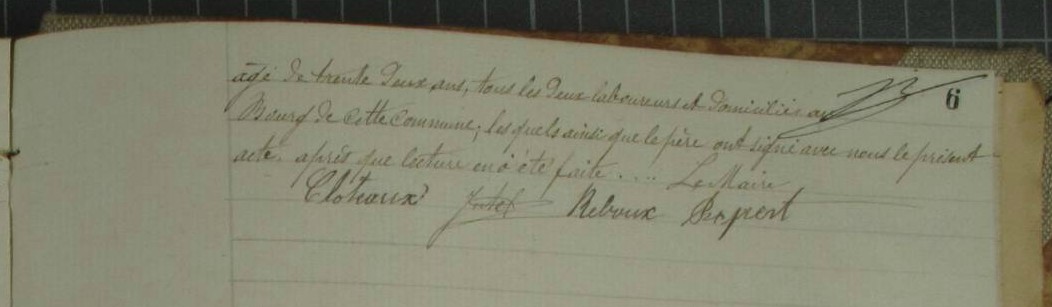 6
agé de trente deux ans, tous les deux laboureurs et domiciliés au
Bourg de cette commune; lesquels ainsi que le père ont signé avec nous le présent
acte. après que lecture en a été faite .... Le Maire
Cloteaux Jutel Reboux Pexpert